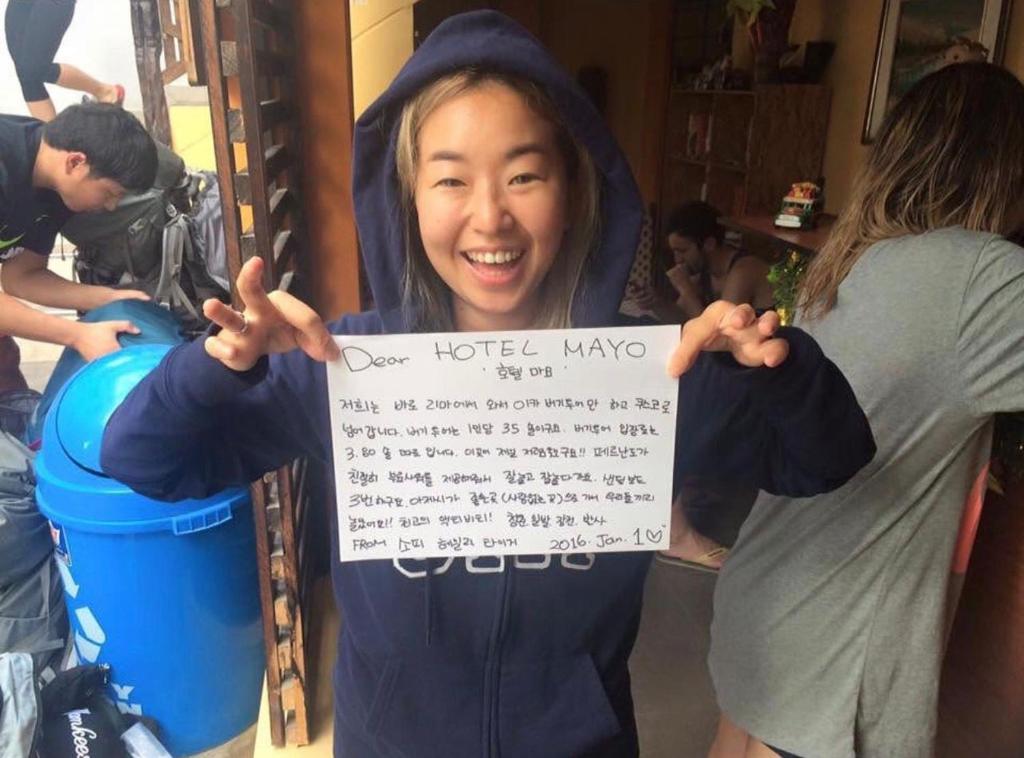 Dear HOTEL MAYO
'호텔 마요'
저희는 바로 리마에서 와서 이카 버기투어만 하고 쿠스코로
넘어갑니다. 버기투어는 1인당 35 솔이구요. 버기투어 입장료는
3.80 솔 따로 입니다. 이곳이 제일 저렴했구요!! 페르난도가
친절히 제공해줘서 잘놀고 잘놀다가요. 샌딩보드
3번하구요. 아저씨가 좋은곳(사람없는곳)으로 가서 우리들끼리
놀았어요!! 최고의 액티비티! 청춘
FROM 소피 헤일리 타이거 2016. Jan. 1♡
Yankees